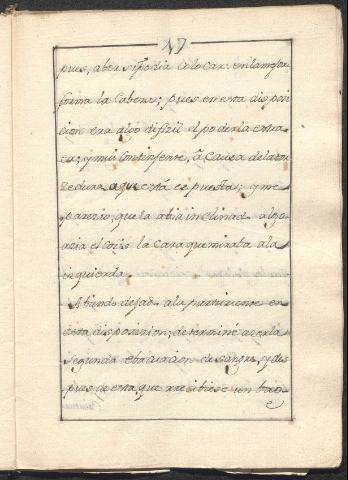 17
pues, aber si podia colocar en la mejor
forma la Cabeza; pues en esta dispoci
cion era algo dificil el poderla estra
ca; y mui Contingente, â Causa de la tor
zedura aque está espuesta; y me
parecio, que la abia inclinado algo
azia el cozis la Cara que miraba ala
izquierda.
Abiendo dejado ala parturiente en
esta disposizion; determiné azerla
segunda Ebacuacion de sangre, y des
pues de esta, que rrecibiese un bao